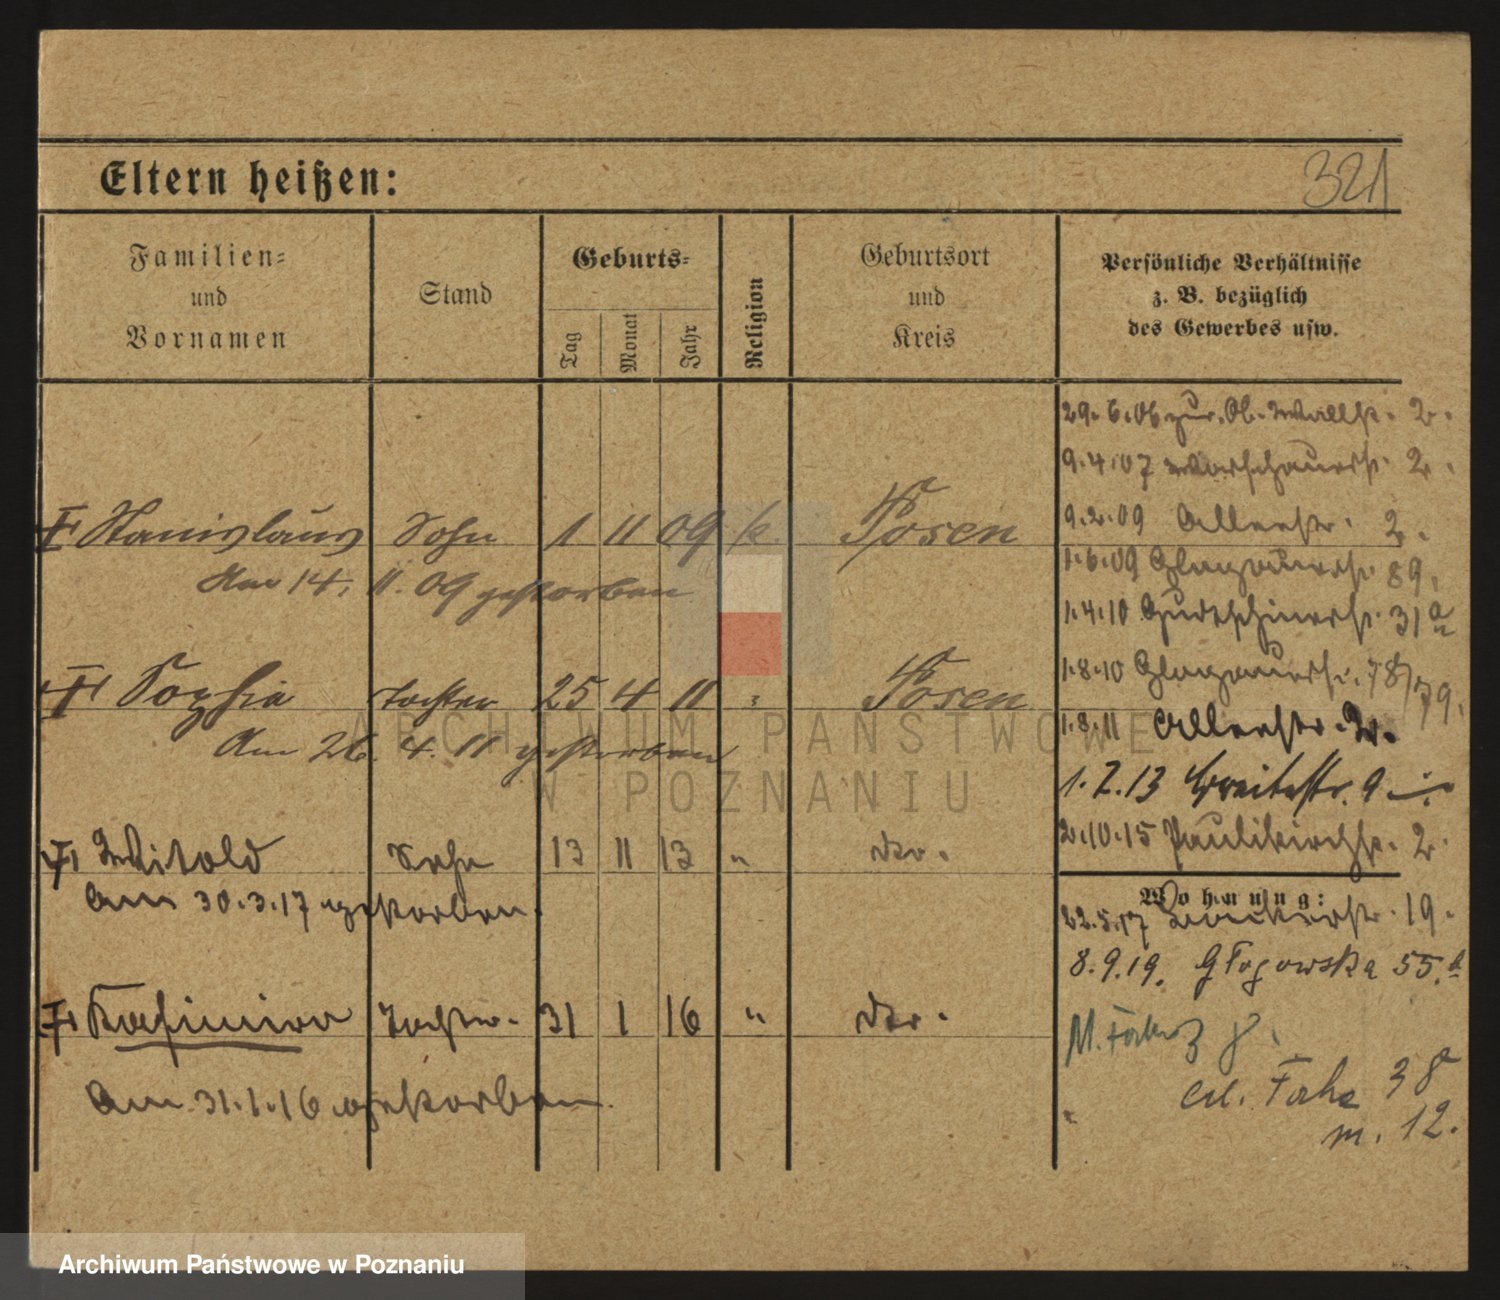 Eltern heißen:
321
Familien-
und
Vornamen
Stand
Geburts-
Tag
Monat
Jahr
Religion
Geburtsort
und
Kreis
Persönliche Verhältnisse
z. B. bezüglich
des Gewerbes usw.
Stanislaus Sohn 1 11 09 k. Posen
Am 14. 11. 09 gestorben
Sophia Tochter 25 4 11 " Posen
Am 26. 4. 11 gestorben
Witold Sohn 13 11 13 " do.
Am 30.3.17 gestorben.
Kasimira Tochter 31 1 16 " do.
Am 31.1.16 gestorben.
29.6.06 zur. Ob. Wallstr. 2.
9.4.07 Warschauerstr. 2.
9.2.09 Allerstr. 2.
1.6.09 Glogauerstr. 89.
1.4.10 Gurtschinerstr. 31a
1.8.10 Glogauerstr. 78/79.
1.8.11 Allerstr. 2.
1.7.13 Breitestr. 9
2.10.15 Paulikirchstr. 2.
Wohnung:
22.5.17 19.
8.9.19. Głogowska 55.a
M. 8.
38
m. 12.
ARCHIWUM PAŃSTWOWE
W POZNANIU
Archiwum Państwowe w Poznaniu